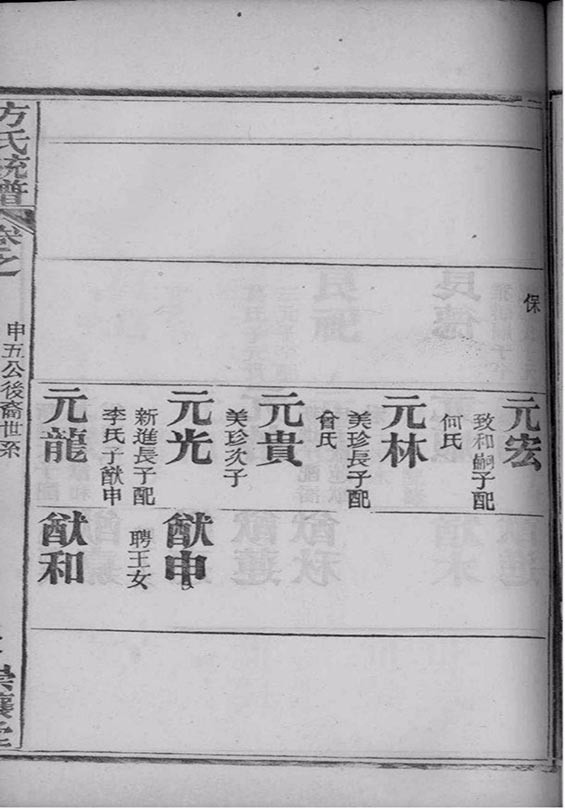 保
元宏
致和嗣子配
何氏
元林
美珍長子配
曾氏
元貴
美珍次子
元光
新進長子配
李氏子猷申
元龍
猷申
聘王女
猷和
方氏統譜
卷之
申五公後裔世系